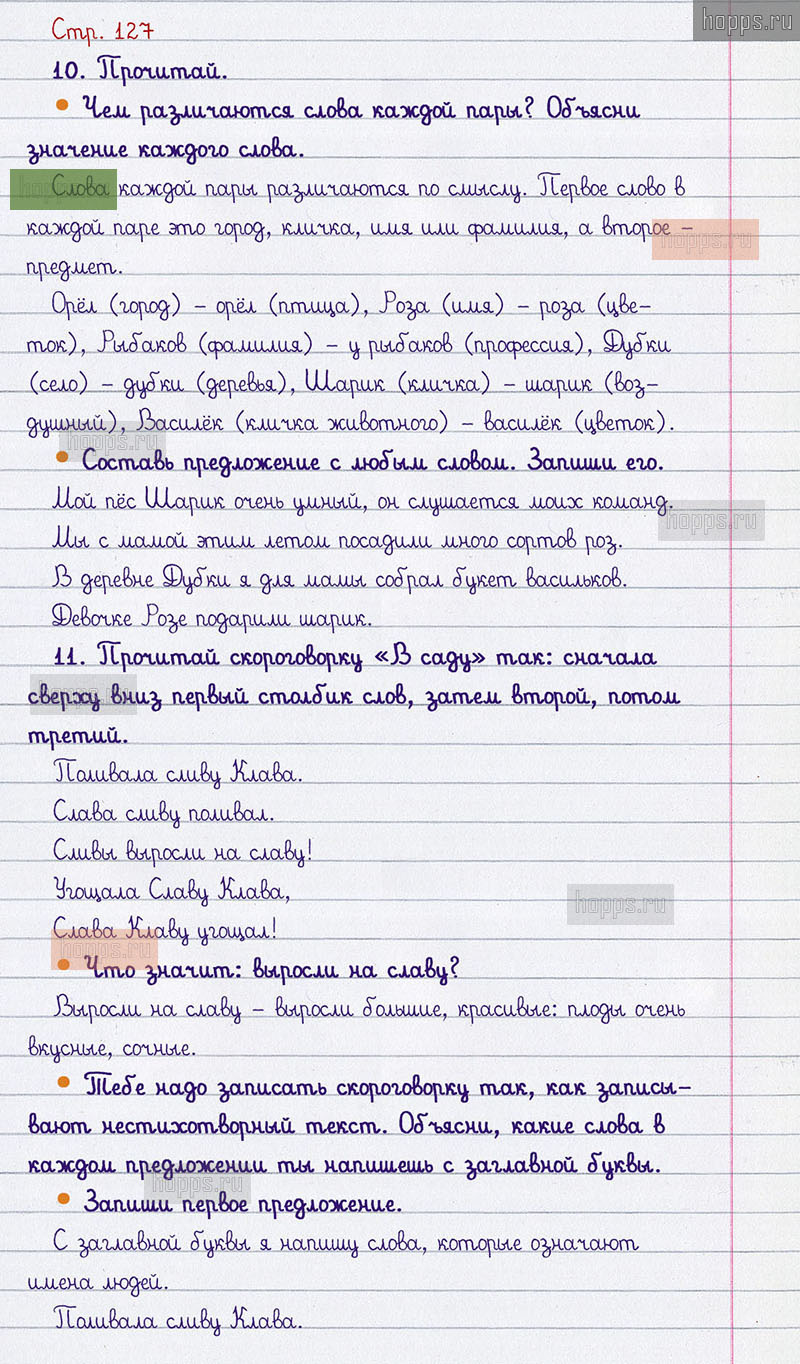 hopps.ru
Стр. 127
10. Прочитай.
• Чем различаются слова каждой пары? Объясни
значение каждого слова.
Слова каждой пары различаются по смыслу. Первое слово в
каждой паре это город, кличка, имя или фамилия, а второе –
предмет.
Орёл (город) – орёл (птица), Роза (имя) – роза (цве-
ток), Рыбаков (фамилия) – у рыбаков (профессия), Дубки
(село) – дубки (деревья), Шарик (кличка) – шарик (воз-
душный), Василёк (кличка животного) – василёк (цветок).
• Составь предложение с любым словом. Запиши его.
Мой пёс Шарик очень умный, он слушается моих команд.
Мы с мамой этим летом посадили много сортов роз.
В деревне Дубки я для мамы собрал букет васильков.
Девочке Розе подарили шарик.
11. Прочитай скороговорку «В саду» так: сначала
сверху вниз первый столбик слов, затем второй, потом
третий.
Поливала сливу Клава.
Слава сливу поливал.
Сливы выросли на славу!
Угощала Славу Клава,
Слава Клаву угощал!
• Что значит: выросли на славу?
Выросли на славу – выросли большие, красивые: плоды очень
вкусные, сочные.
• Тебе надо записать скороговорку так, как записы-
вают нестихотворный текст. Объясни, какие слова в
каждом предложении ты напишешь с заглавной буквы.
• Запиши первое предложение.
С заглавной буквы я напишу слова, которые означают
имена людей.
Поливала сливу Клава.